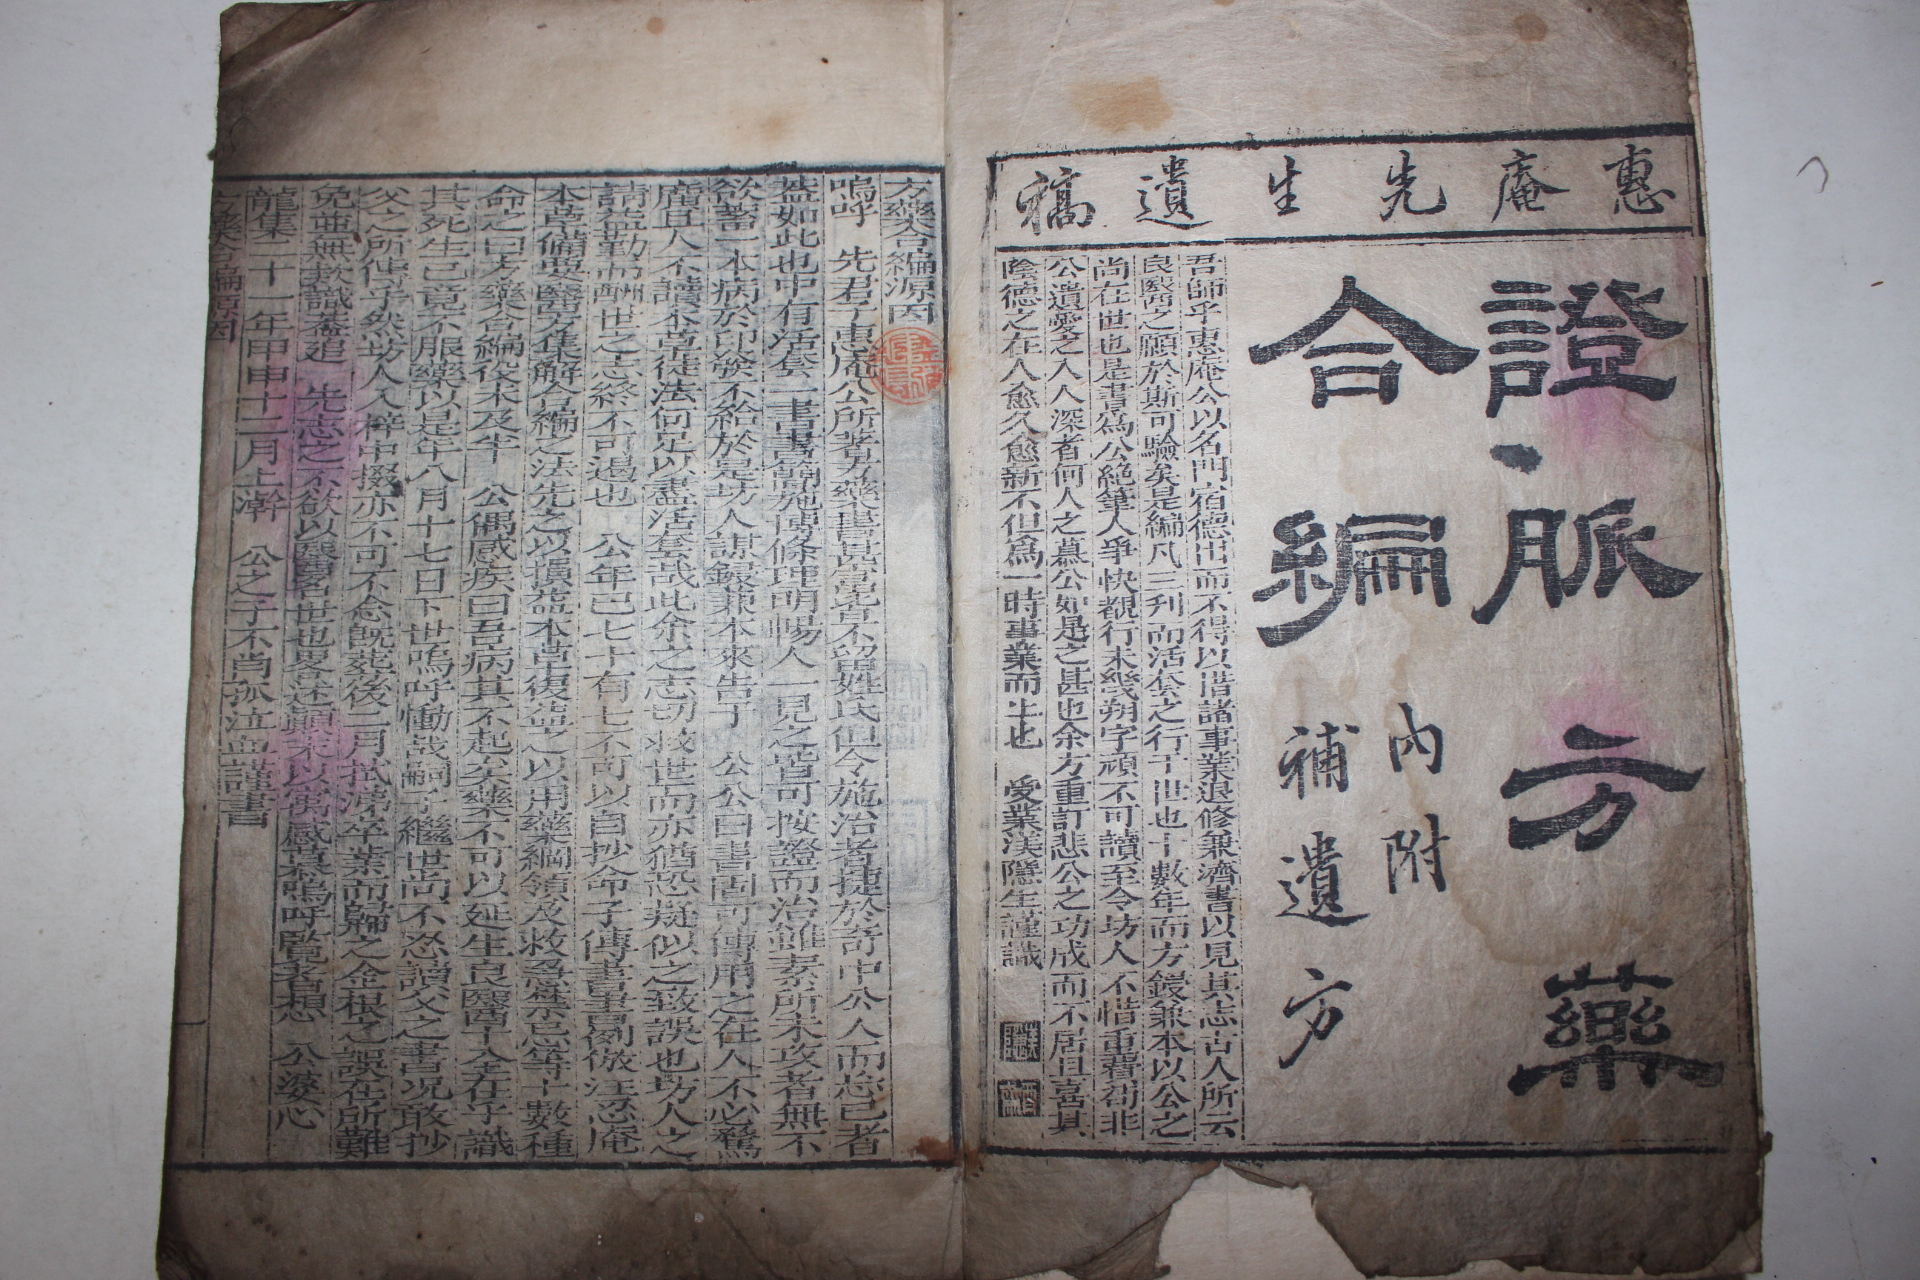 惠庵先生遺稿
證脈方藥
合編
內附
補遺方
吾師乎惠庵公以名門宿德出而不得以借諸事業退修兼濟書以見其志古人所云
良醫之願於斯可驗矣是編凡三刋而活套之行于世也十數年而方錢兼本以公之
尚在世也是書爲公絶筆人爭快覩行未幾朔字頑不可讀至今坊人不惜重費苟非
公遺愛之入人深者何人之慕公如是之甚也余方重訂悲公之功成而不居且喜其
陰德之在人愈久愈新不但爲一時事業而止也 受業渼隱生謹識
方藥合編源因
嗚呼 先君子惠庵公所著方藥書甚富皆不留姓氏但令施治者捷於奇中公人而忘己者
蓋如此也中有活套一書書簡施博條理明暢人一見之皆可按證而治雖素所未攻者無不
欲蓄一本病於印發不給於是坊人謀錄兼本來告于 公公曰書固可傳用之在人不必騖
廣且人不讀本草徒法何足以盡活套哉此余之志切救世而亦猶恐疑似之致誤也坊人之
請益勤而酬世之志終不可遏也 公年已七十有七不可以自抄命子傳書書例倣汪忍庵
本草備要醫方集解合編之法先之以損益本草復益之以用藥綱領及救急禁忌等十數種
命之曰方藥合編役未及半 公偶感疾曰吾病其不起矣藥不可以延生良醫十全在乎識
其死生已竟不服藥以是年八月十七日下世嗚呼慟哉嗣子繼世尚不忍讀父之書况敢抄
父之所傳乎然坊人入梓中掇亦不可不念旣葬後二月拭涕卒業而歸之金根之誤在所難
免並無欵識盖追 先志之不欲以醫名世也畧述顚末以寓感慕嗚呼覽者想 公婆心
龍集二十一年甲申十二月上澣 公之子不肖孤泣血謹書
方藥合編源因